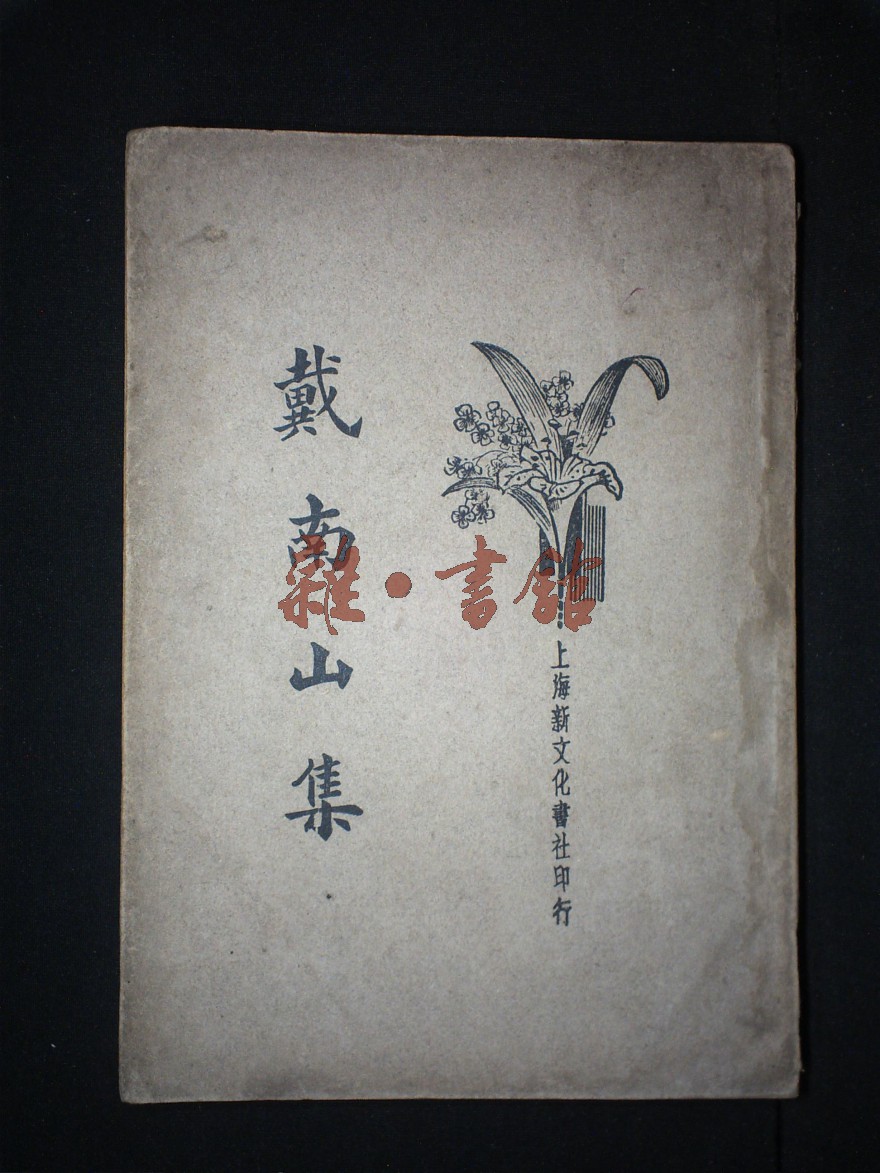 戴南山集
上海新文化書社印行
雜·書館